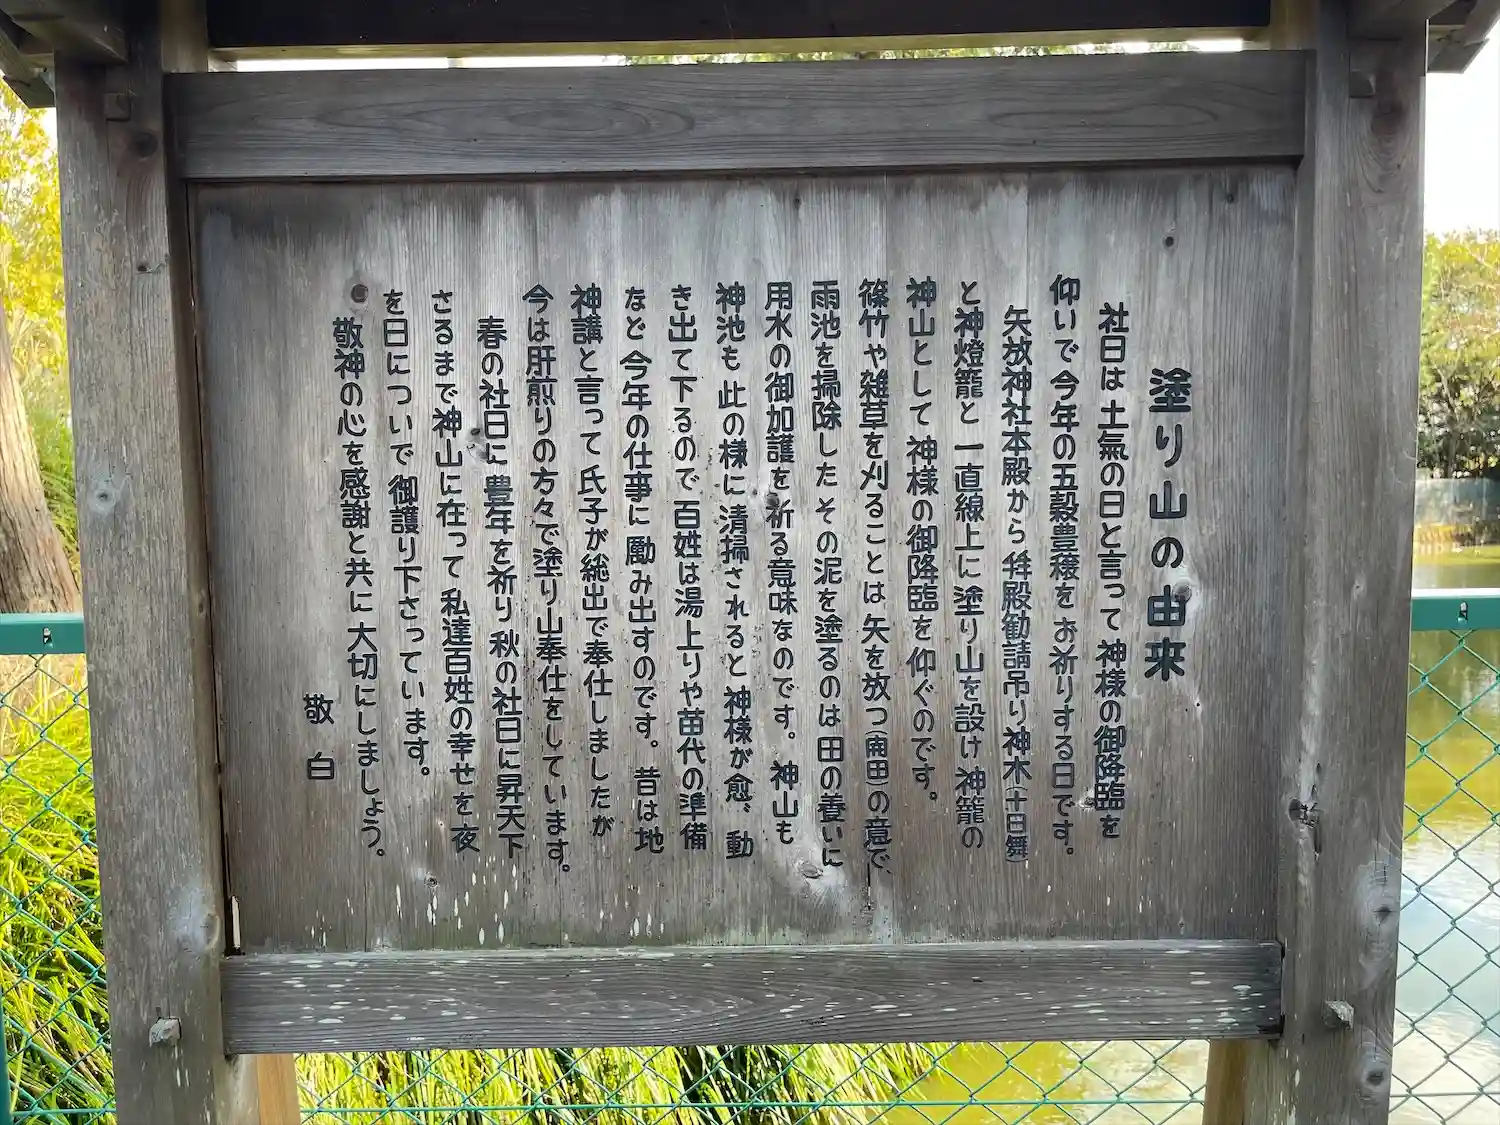 塗り山の由来
社日は土氣の日と言って神様の御降臨を
仰いで今年の五穀豊穣をお祈りする日です。
矢放神社本殿から 拜殿勧請吊り神木(十日舞)
と神燈籠と一直線上に塗り山を設け神籠の
神山として神様の御降臨を仰ぐのです。
篠竹や雑草を刈ることは矢を放つ(南田)の意で、
雨池を掃除したその泥を塗るのは田の養いに
用水の御加護を祈る意味なのです。神山も
神池も此の様に清掃されると神様が愈〻動
き出て下るので百姓は湯上りや苗代の準備
など今年の仕事に勵み出すのです。昔は地
神講と言って氏子が総出で奉仕しましたが
今は肝煎りの方々で塗り山奉仕をしています。
春の社日に豊年を祈り秋の社日に昇天下
さるまで神山に在って私達百姓の幸せを夜
を日についで御護り下さっています。
敬神の心を感謝と共に大切にしましょう。
敬白